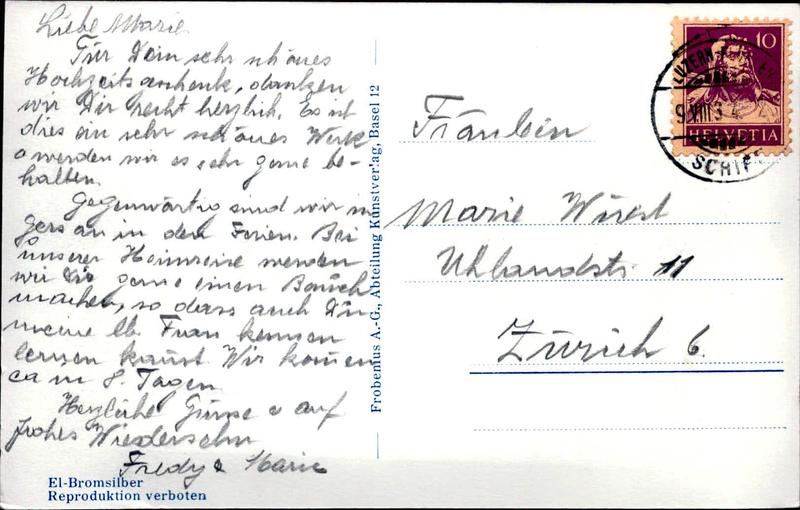 Liebe Marie
Für Dein sehr schönes
Hochzeitsgeschenk, danken
wir Dir recht herzlich. Es ist
dies ein sehr schönes Werk
u werden wir es sehr gerne be-
halten.
Gegenwärtig sind wir in
in den Ferien. Bei
unserer Heimreise werden
wir Dir gerne einen Besuch
machen, so dass auch Du
meine lb. Frau kennen
lernen kannst. Wir kommen
ca in 8. Tagen.
Herzliche Grüsse u auf
frohes Wiedersehn
Fredy & Marie
El-Bromsilber
Reproduktion verboten
Frobenius A.-G., Abteilung Kunstverlag, Basel 12
10
HELVETIA
LUZERN
9 VIII 3
SCHIF
Fräulein
Marie Wirst
Uhlandstr. 11
Zürich 6.